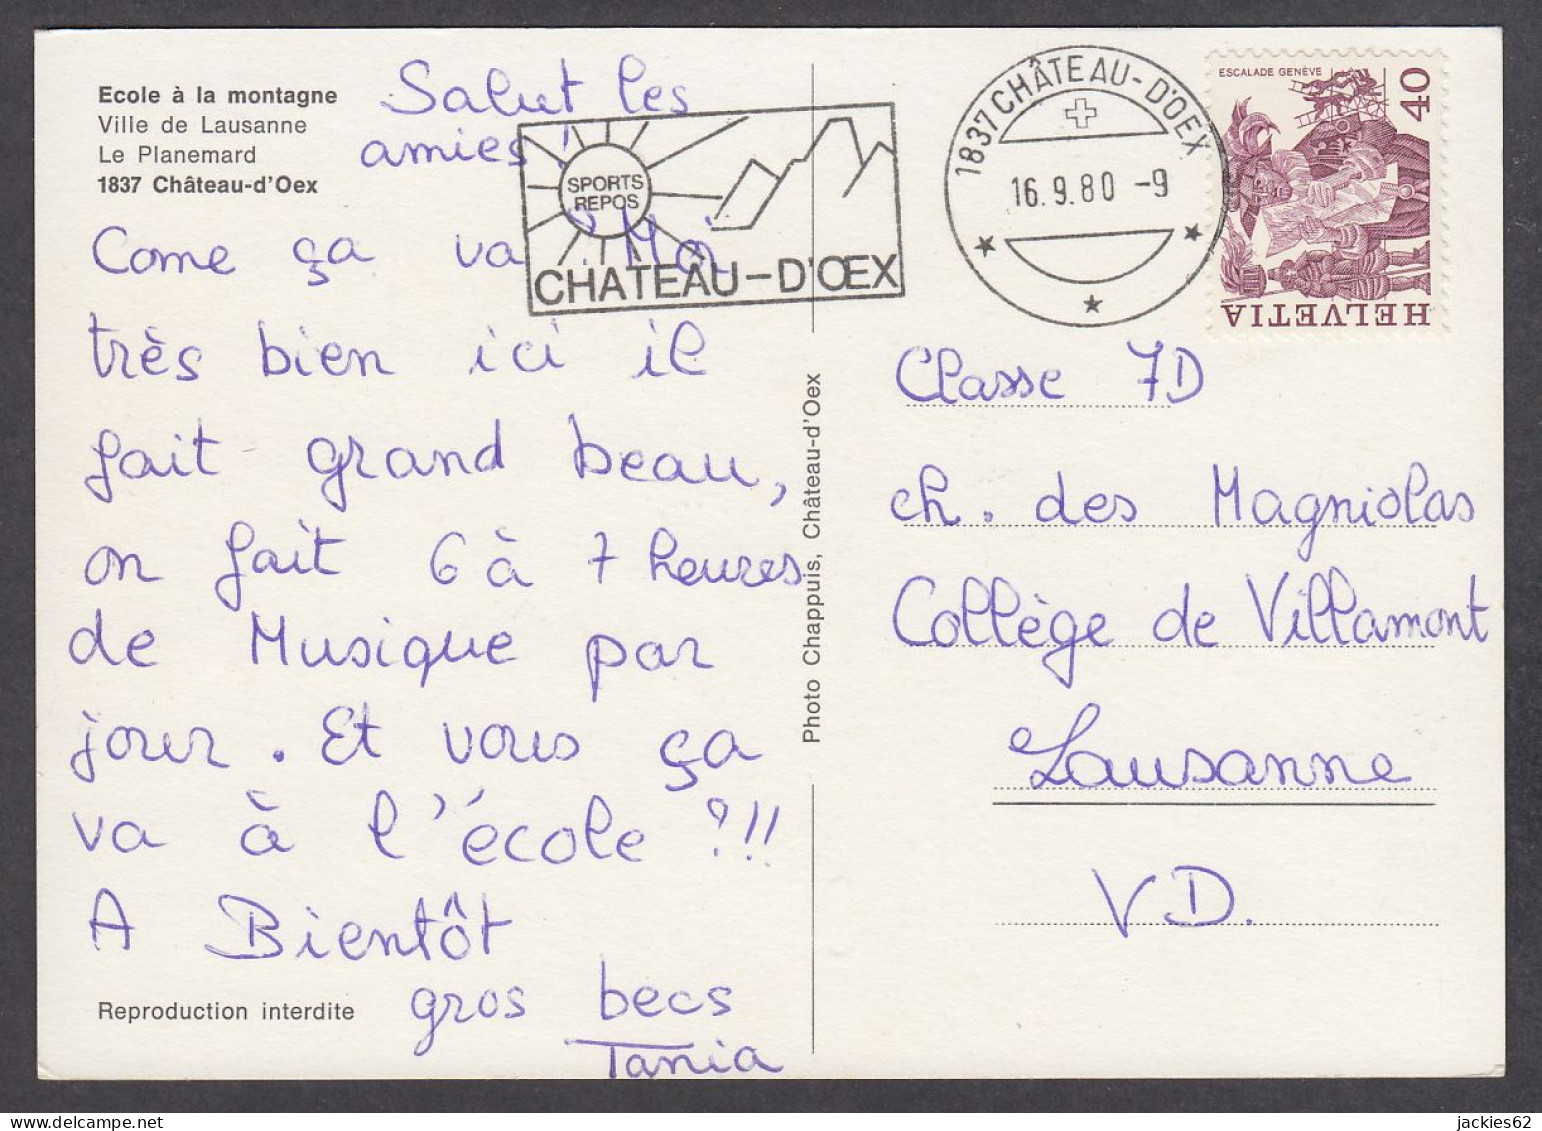 Ecole à la montagne
Ville de Lausanne
Le Planemard
1837 Château-d'Oex
Salut les
amies !
Come ça va ? Moi
très bien ici il
fait grand beau,
on fait 6 à 7 heures
de Musique par
jour. Et vous ça
va à l'école ?!!
A Bientôt
gros becs
Tania
Reproduction interdite
SPORTS
REPOS
CHÂTEAU-D'ŒX
Photo Chappuis, Château-d'Oex
1837 CHÂTEAU-D'OEX
16.9.80 -9
ESCALADE GENÈVE
40
HELVETIA
Classe 7D
ch. des Magniolas
Collège de Villamont
Lausanne
VD.
jackies62